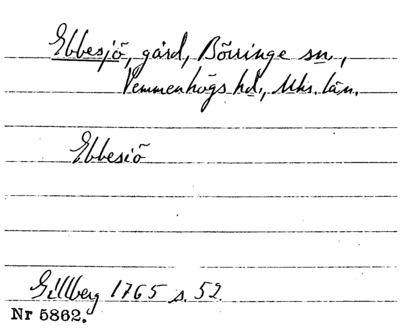 Ebbesjö, gård, Börringe sn.,
Vemmenhögs hd., Mhs. län.
Ebbesiö
Gillberg 1765 s. 52.
Nr 5862.